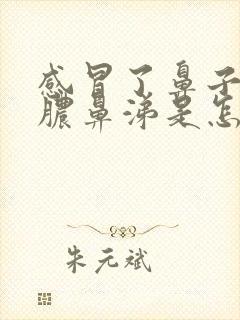 感冒了鼻子
脓鼻涕是怎
朱元斌